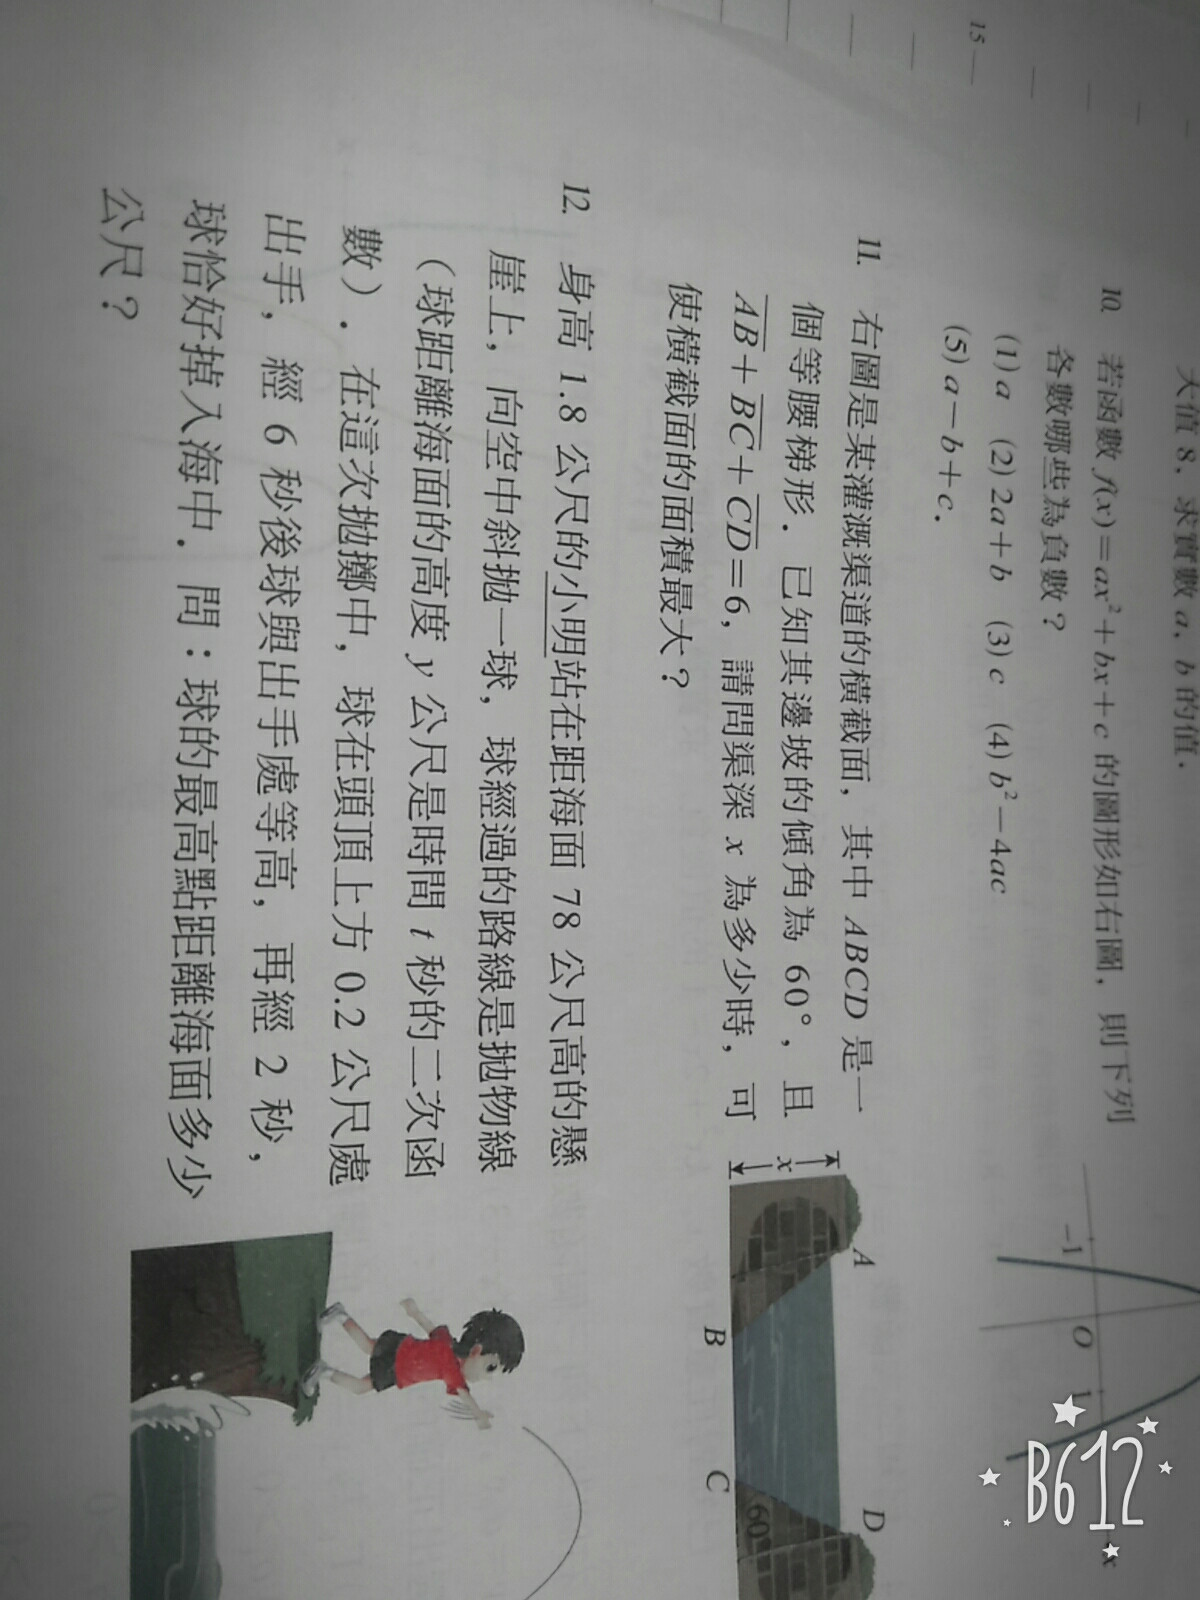 15
大值 8，求實數 a，b 的值．
10. 若函數 f(x)＝ax²＋bx＋c 的圖形如右圖，則下列
各數哪些為負數？
(1) a (2) 2a＋b (3) c (4) b²－4ac
(5) a－b＋c．
-1
O
1
x
11. 右圖是某灌溉渠道的橫截面，其中 ABCD 是一
個等腰梯形．已知其邊坡的傾角為 60°，且
AB＋BC＋CD＝6，請問渠深 x 為多少時，可
使橫截面的面積最大？
A
D
x
60°
B
C
12. 身高 1.8 公尺的小明站在距海面 78 公尺高的懸
崖上，向空中斜拋一球，球經過的路線是拋物線
（球距離海面的高度 y 公尺是時間 t 秒的二次函
數）．在這次拋擲中，球在頭頂上方 0.2 公尺處
出手，經 6 秒後球與出手處等高，再經 2 秒，
球恰好掉入海中．問：球的最高點距離海面多少
公尺？
B612